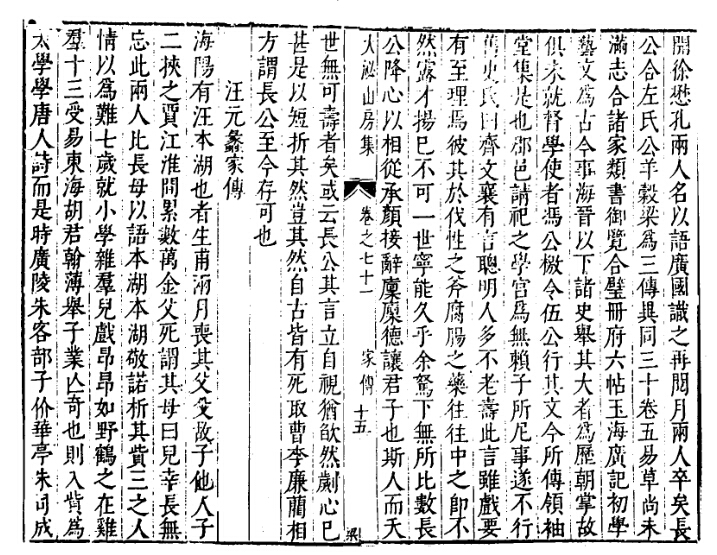 開徐懋孔兩人名以語廣國識之再閱月兩人卒矣長
公合左氏公羊穀梁為三傳異同三十卷五易草尚未
滿志合諸家類書御覽合璧冊府六帖玉海廣記初學
藝文為古今事海晉以下諸史舉其大者為歷朝掌故
俱未就督學使者馮公檄令伍公行其文今所傳領袖
堂集是也郡邑請祀之學官為無賴子所尼事遂不行
舊史氏曰齊文襄有言聰明人多不老壽此言雖戲要
有至理焉彼其於伐性之斧腐腸之藥往往中之即不
然露才揚己不可一世寧能久乎余駑下無所比數長
公降心以相從承顏接辭稟稟德讓君子也斯人而天
大泌山房集 卷之七十一 家傳 十五
世無可壽者矣或云長公其言立自視猶欿然劌心已
甚是以短折其然豈其然自古皆有死取曹李廉藺相
方謂長公至今存可也
汪元蠡家傳
海陽有汪本湖也者生甫兩月喪其父父故子他人子
二挾之賈江淮間累數萬金父死謂其母曰兒幸長無
忘此兩人比長母以語本湖本湖敬諾析其貲三之人
情以為難七歲就小學雜羣兒戲昂昂如野鶴之在雞
羣十三受易東海胡君翰薄舉子業亡奇也則入貲為
太學學唐人詩而是時廣陵朱客部子价華亭朱司成